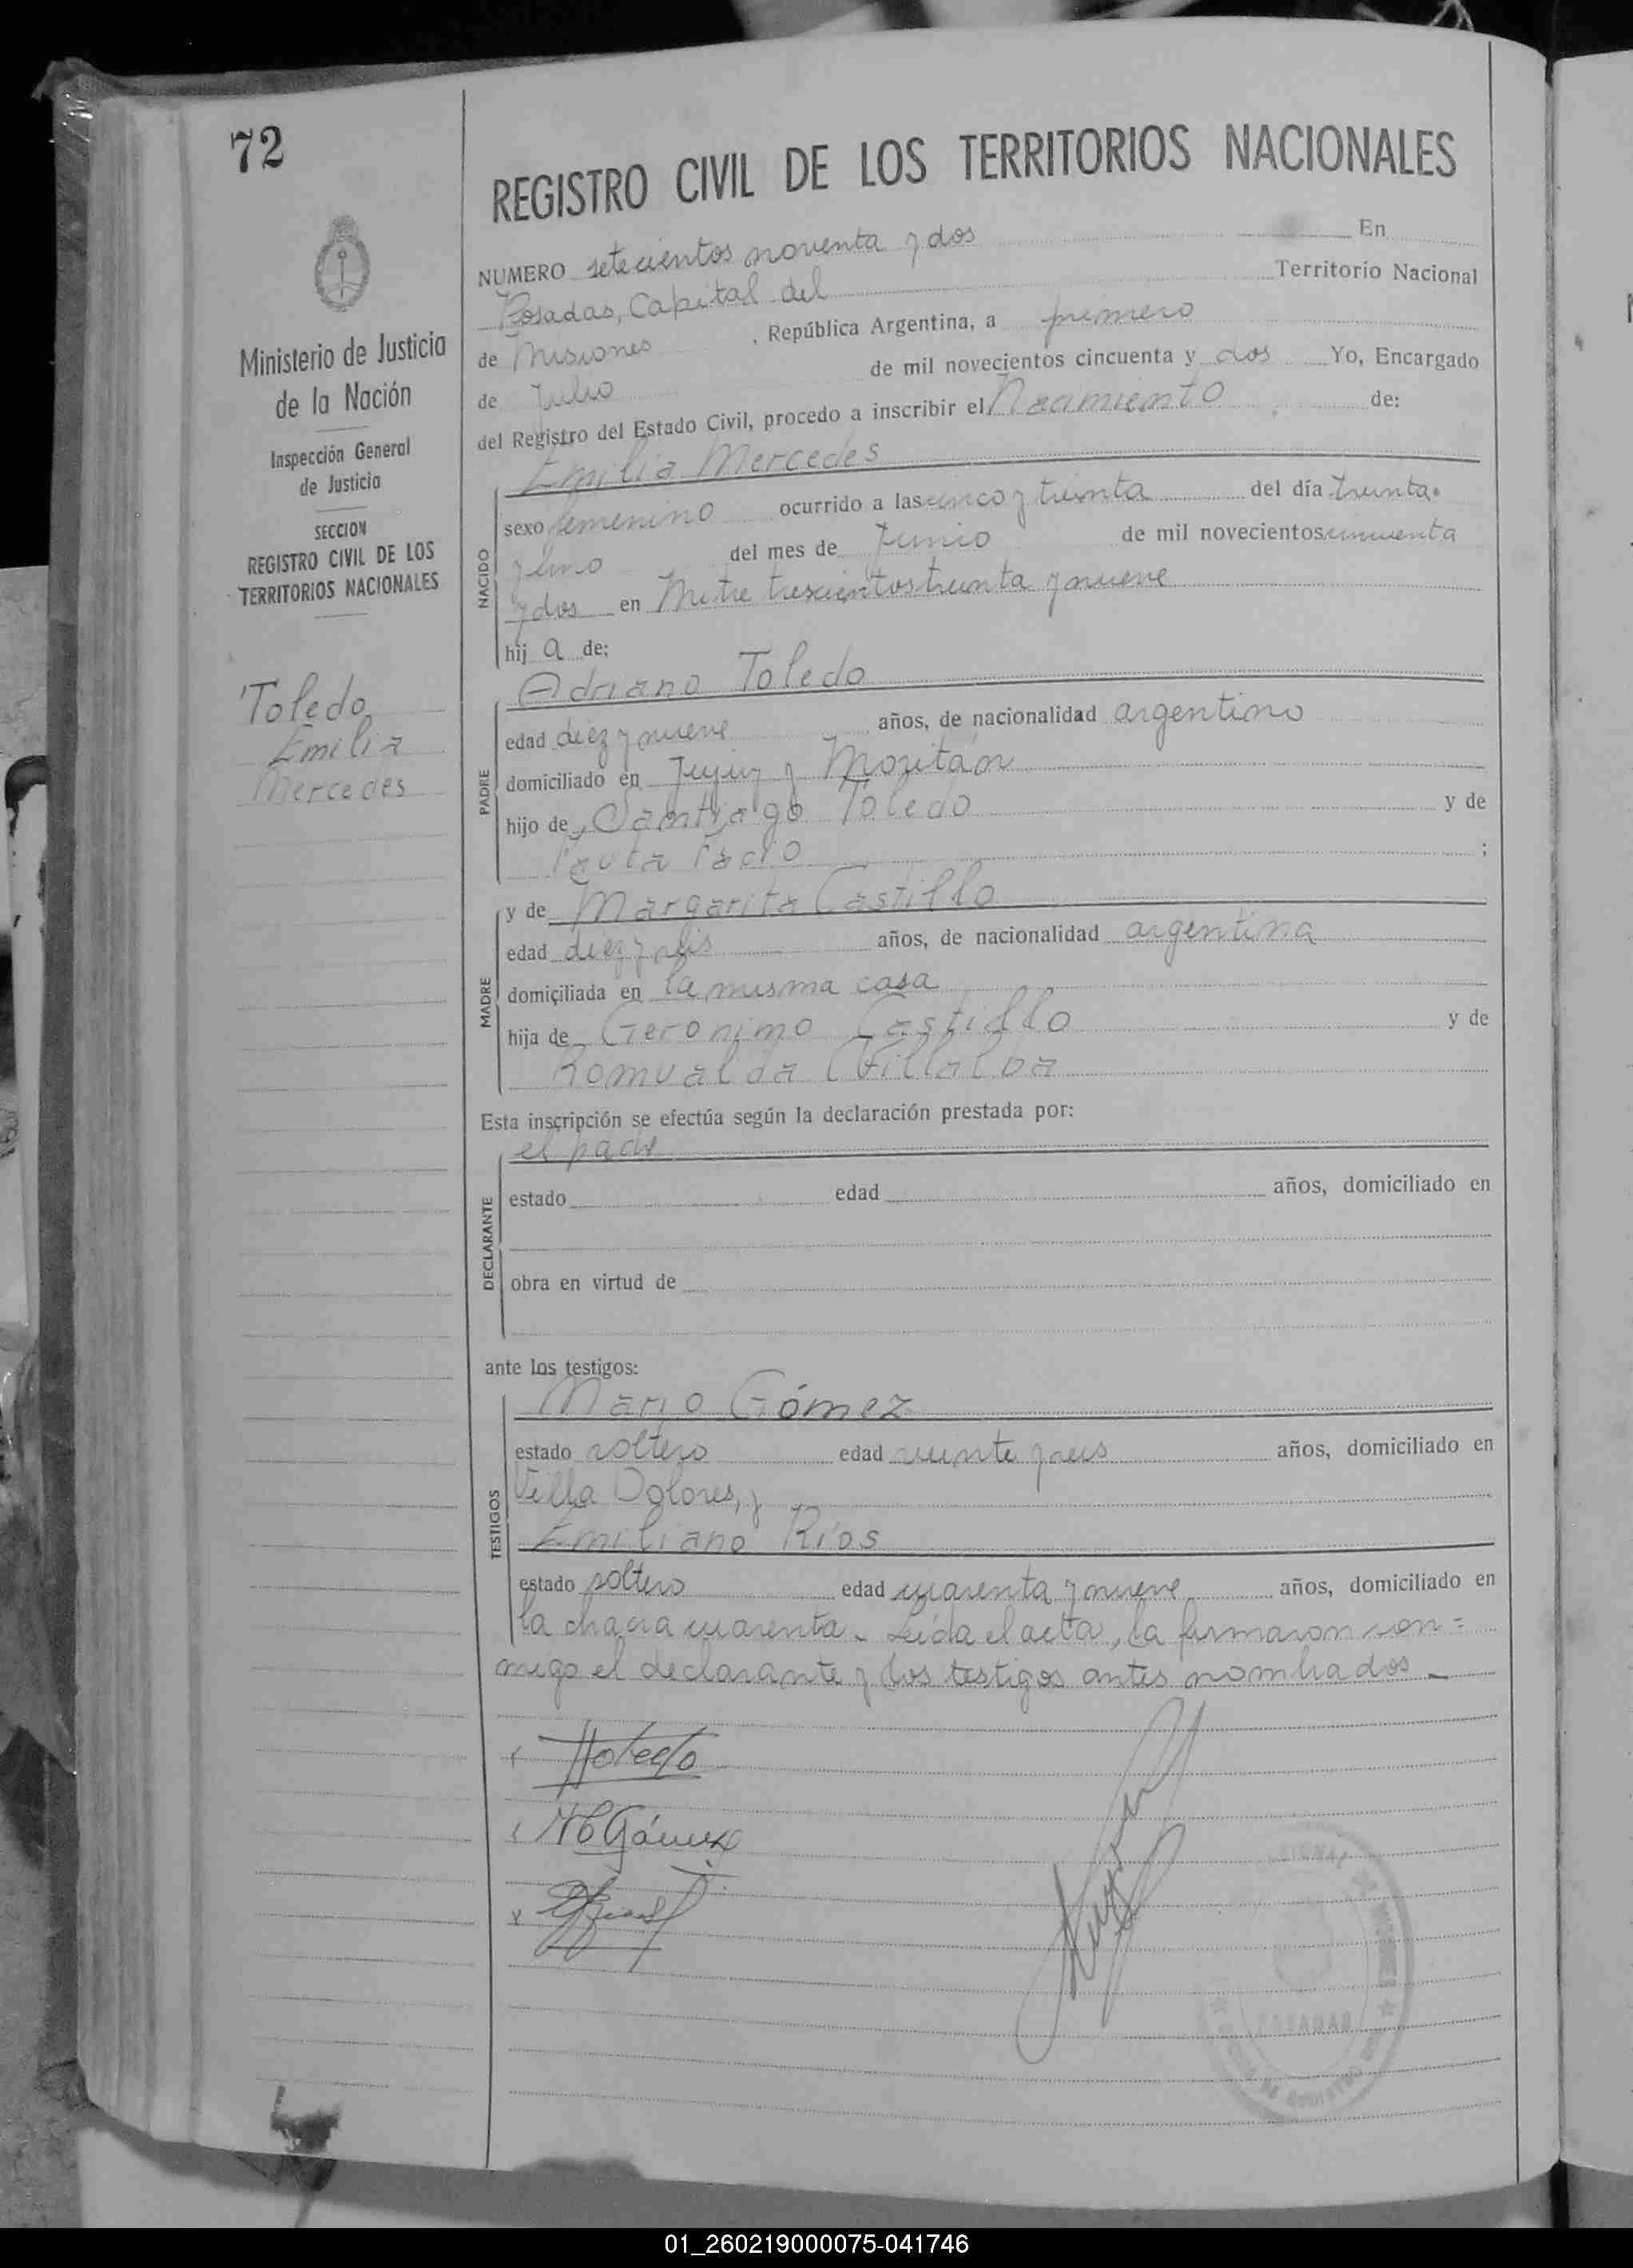 72
REGISTRO CIVIL DE LOS TERRITORIOS NACIONALES
NUMERO setecientos noventa y dos En
Posadas, Capital del Territorio Nacional
de Misiones, República Argentina, a primero
de Julio de mil novecientos cincuenta y dos Yo, Encargado
del Registro del Estado Civil, procedo a inscribir el Nacimiento de:
Emilia Mercedes
Ministerio de Justicia
de la Nación
Inspección General
de Justicia
SECCION
REGISTRO CIVIL DE LOS
TERRITORIOS NACIONALES
Toledo
Emilia
Mercedes
NACIDO
sexo femenino ocurrido a las cinco y treinta del día treinta
y uno del mes de Junio de mil novecientos cincuenta
y dos en Mitre trescientos treinta y nueve
hij a de:
Adriano Toledo
PADRE
edad diez y nueve años, de nacionalidad argentino
domiciliado en Jujuy y
hijo de Santiago Toledo y de
;
y de Margarita Castillo
MADRE
edad diez y seis años, de nacionalidad argentina
domiciliada en la misma casa
hija de Geronimo Castillo y de
Romualda Villalba
Esta inscripción se efectúa según la declaración prestada por:
el padre
DECLARANTE
estado edad años, domiciliado en
obra en virtud de
ante los testigos:
Mario Gómez
TESTIGOS
estado soltero edad veinte y seis años, domiciliado en
Villa Dolores, y
Emiliano Ríos
estado soltero edad cuarenta y nueve años, domiciliado en
la chacra cuarenta. Leida el acta, la firmaron con=
migo el declarante y los testigos antes nombrados -
Toledo
Gómez
POSADAS
01_260219000075-041746